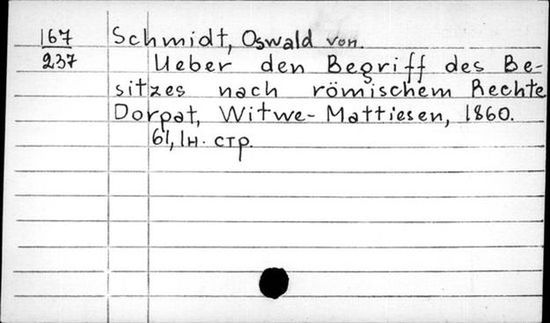 167 Schmidt, Oswald von.
237 Ueber den Begriff des Be-
sitzes nach römischem Rechte
Dorpat, Witwe-Mattiesen, 1860.
61, 1н. стр.